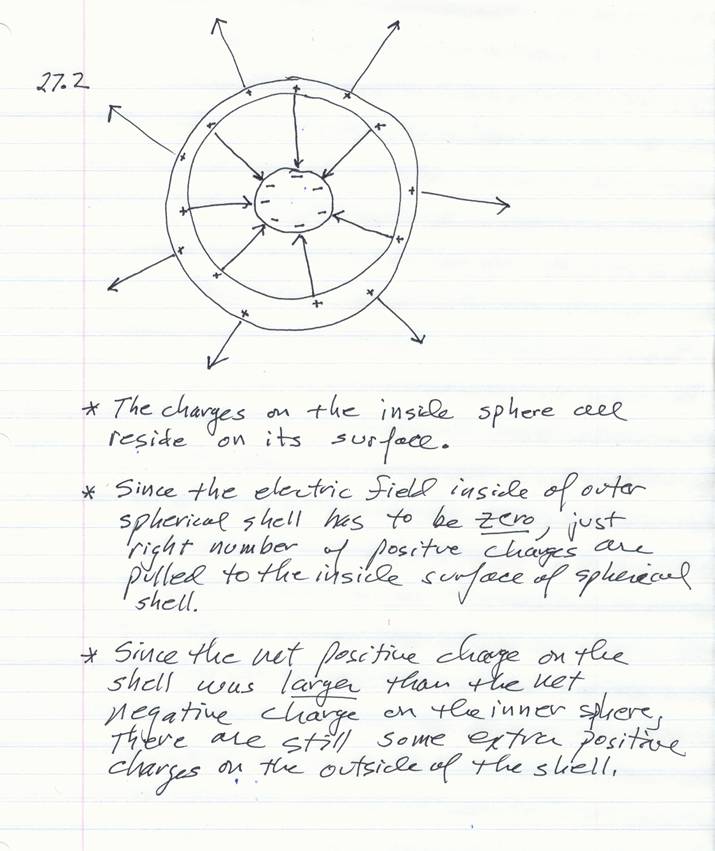 27.2
* The charges on the inside sphere all
reside on its surface.
* Since the electric field inside of outer
spherical shell has to be zero, just
right number of positve charges are
pulled to the inside surface of spherical
shell.
* Since the net positive charge on the
shell was larger than the net
negative charge on the inner sphere,
There are still some extra positive
charges on the outside of the shell.